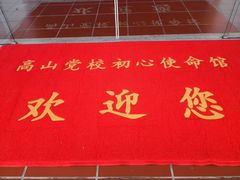 高山党校初心使命馆
欢迎您